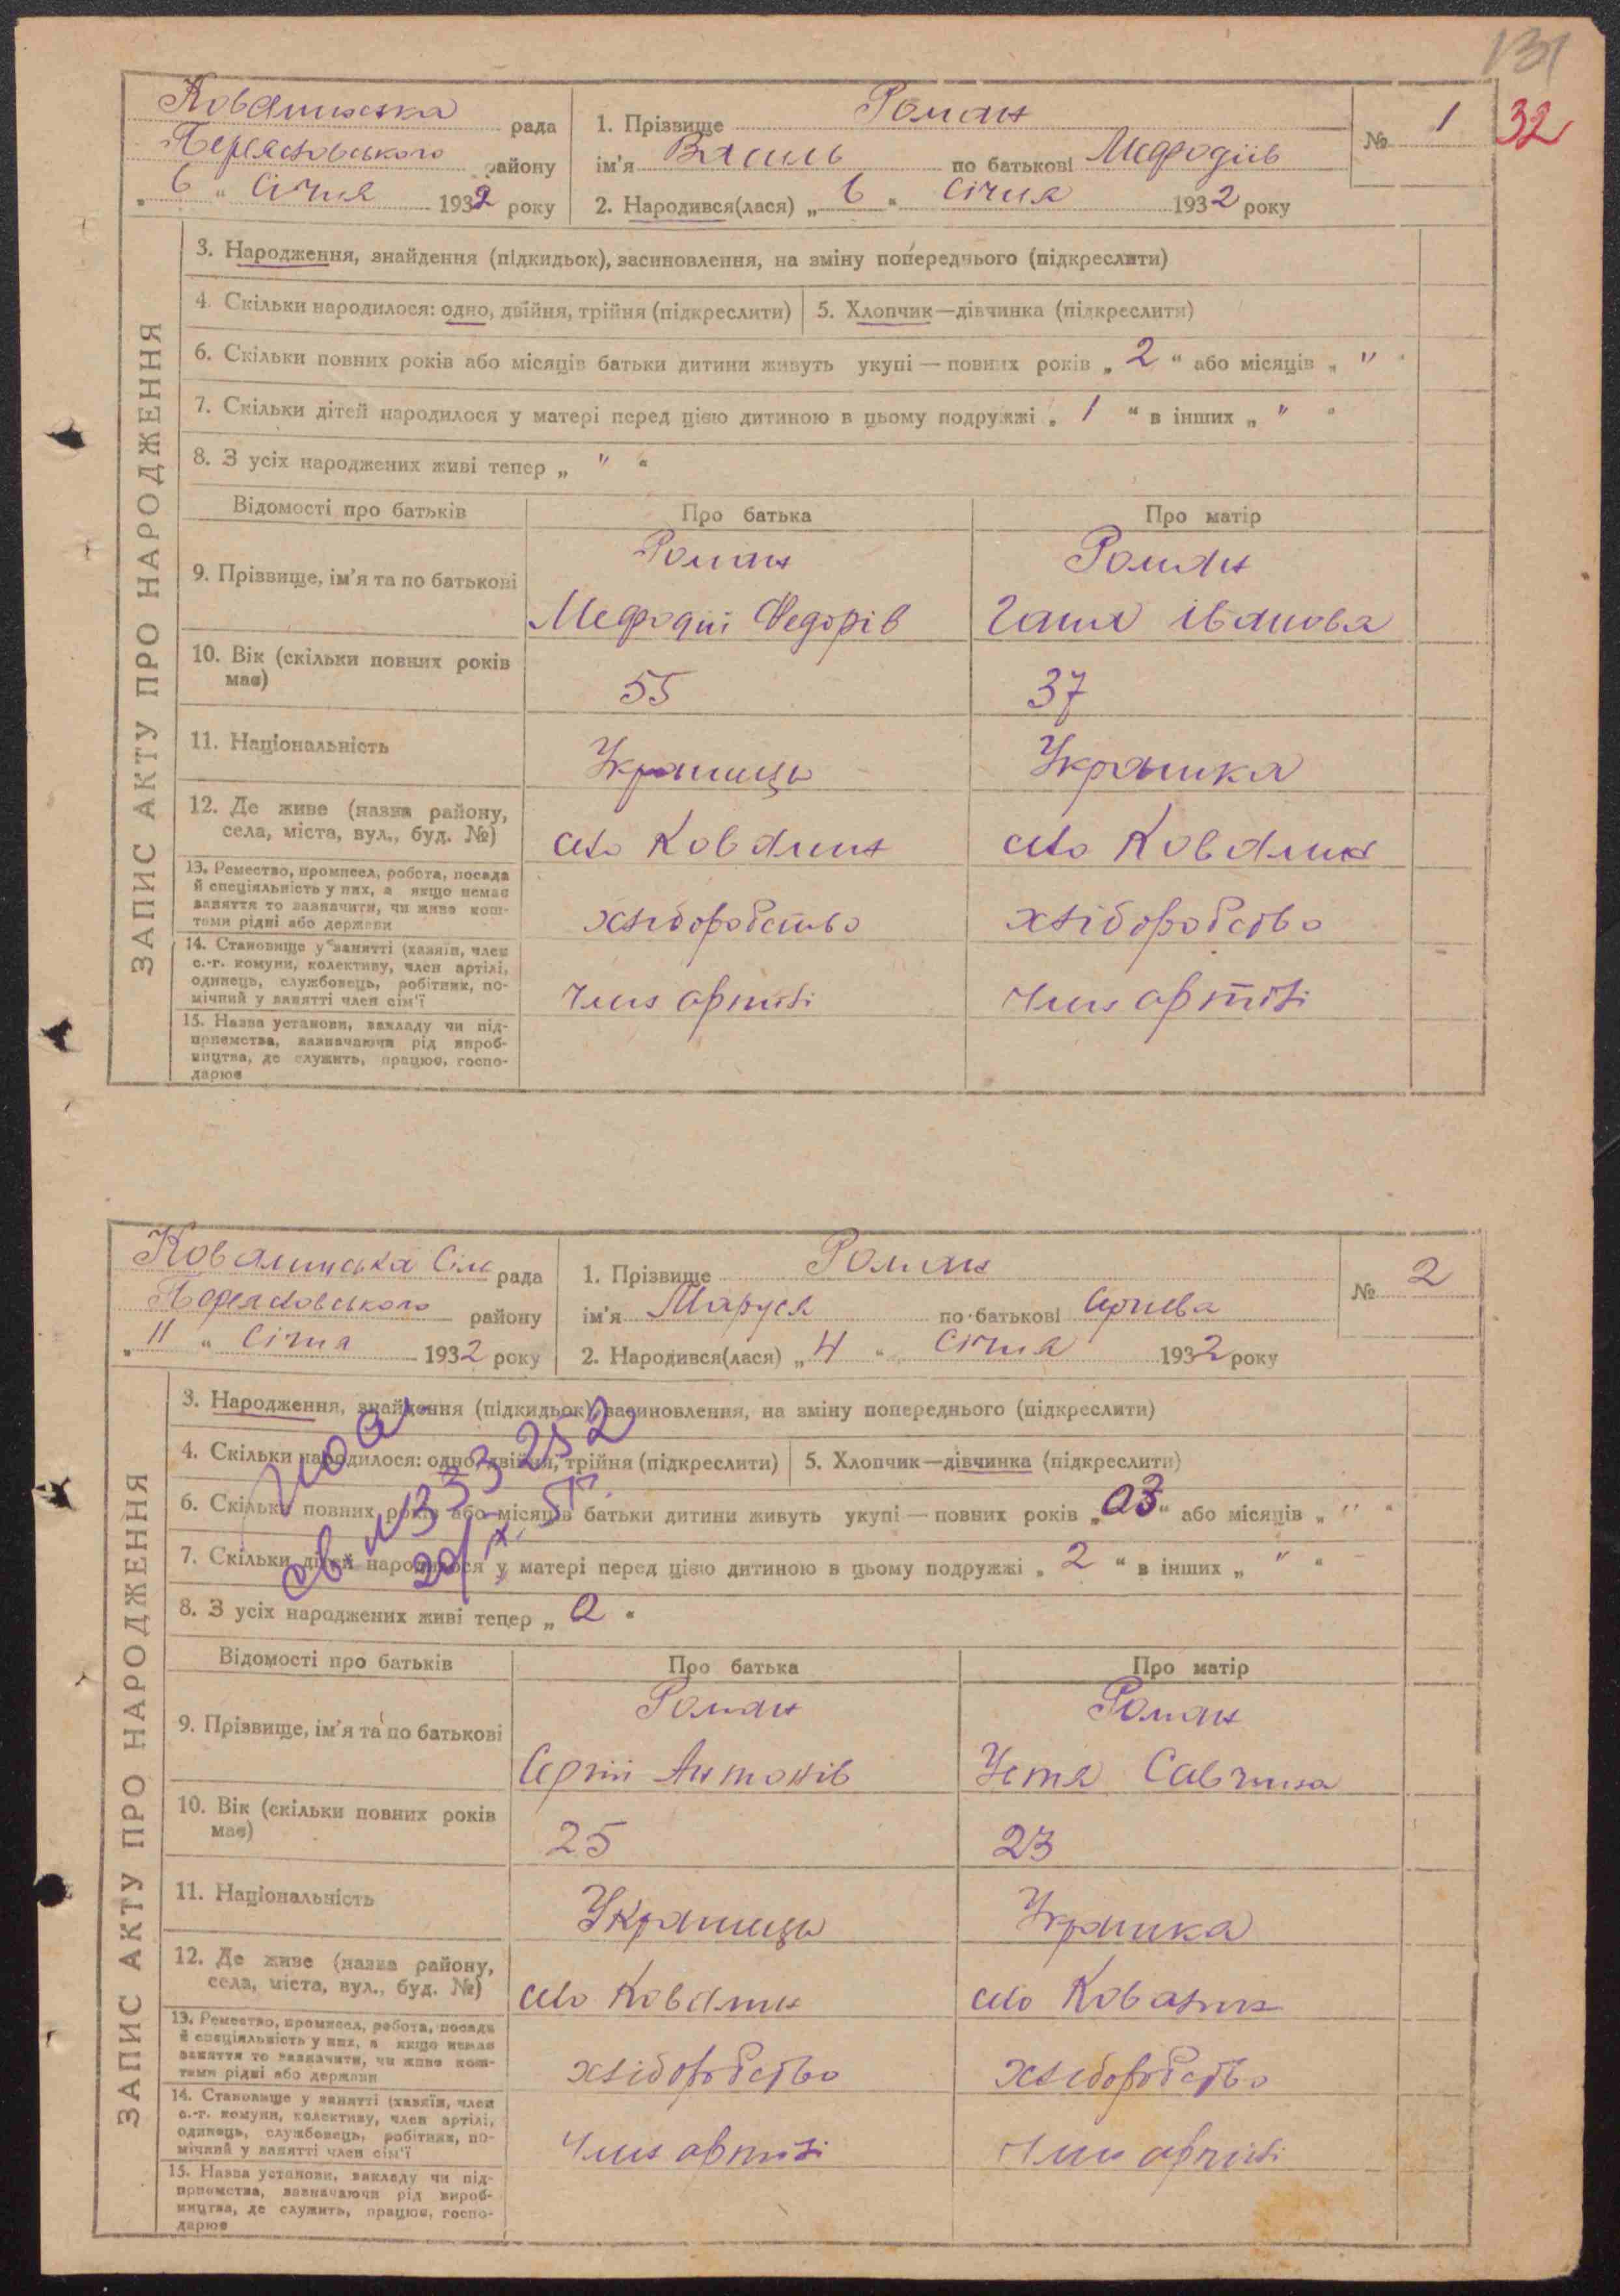 131
32
Ковалинська рада
Переяславського району
„ 6 “ Січня 1932 року
1. Прізвище Роман
ім'я Василь по батькові Мефодіїв
2. Народився(лася) „ 6 “ Січня 1932 року
№ 1
ЗАПИС АКТУ ПРО НАРОДЖЕННЯ
3. Народження, знайдення (підкидьок), засиновлення, на зміну попереднього (підкреслити)
4. Скільки народилося: одно, двійня, трійня (підкреслити)
5. Хлопчик—дівчинка (підкреслити)
6. Скільки повних років або місяців батьки дитини живуть укупі — повних років „ 2 “ або місяців „ " “
7. Скільки дітей народилося у матері перед цією дитиною в цьому подружжі „ 1 “ в інших „ " “
8. З усіх народжених живі тепер „ " “
Відомості про батьків
Про батька
Про матір
9. Прізвище, ім'я та по батькові
Роман
Мефодій Федорів
Роман
Ганя Іванова
10. Вік (скільки повних років має)
55
37
11. Національність
Українець
Українка
12. Де живе (назва району, села, міста, вул., буд. №)
село Ковалин
село Ковалин
13. Ремество, промисел, робота, посада
й спеціяльність у них, а якщо немає
заняття то зазначити, чи живе кош-
тами рідні або держави
хліборобство
хліборобство
14. Становище у занятті (хазяїн, член
с.-г. комуни, колективу, член артілі,
одинець, службовець, робітник, по-
мічний у занятті член сім'ї
член артілі
член артілі
15. Назва установи, закладу чи під-
приємства, зазначаючи рід вироб-
ництва, де служить, працює, госпо-
дарює
Ковалинська Сіль рада
Переяславського району
„ 11 “ Січня 1932 року
1. Прізвище Роман
ім'я Маруся по батькові Сергієва
2. Народився(лася) „ 4 “ Січня 1932 року
№ 2
ЗАПИС АКТУ ПРО НАРОДЖЕННЯ
3. Народження, знайдення (підкидьок), засиновлення, на зміну попереднього (підкреслити)
4. Скільки народилося: одно, двійня, трійня (підкреслити)
5. Хлопчик—дівчинка (підкреслити)
6. Скільки повних років або місяців батьки дитини живуть укупі — повних років „ 03 “ або місяців „ " “
7. Скільки дітей народилося у матері перед цією дитиною в цьому подружжі „ 2 “ в інших „ " “
8. З усіх народжених живі тепер „ 2 “
Відомості про батьків
Про батька
Про матір
9. Прізвище, ім'я та по батькові
Роман
Сергій Антонів
Роман
Устя Савчина
10. Вік (скільки повних років має)
25
23
11. Національність
Українець
Українка
12. Де живе (назва району, села, міста, вул., буд. №)
село Ковалин
село Ковалин
13. Ремество, промисел, робота, посада
й спеціяльність у них, а якщо немає
заняття то зазначити, чи живе кош-
тами рідні або держави
хліборобство
хліборобство
14. Становище у занятті (хазяїн, член
с.-г. комуни, колективу, член артілі,
одинець, службовець, робітник, по-
мічний у занятті член сім'ї
член артілі
член артілі
15. Назва установи, закладу чи під-
приємства, зазначаючи рід вироб-
ництва, де служить, працює, госпо-
дарює